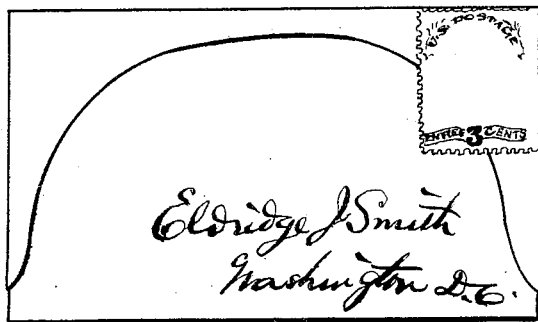 U.S. POSTAGE
THREE 3 CENTS
Eldridge J Smith
Washington D.C.